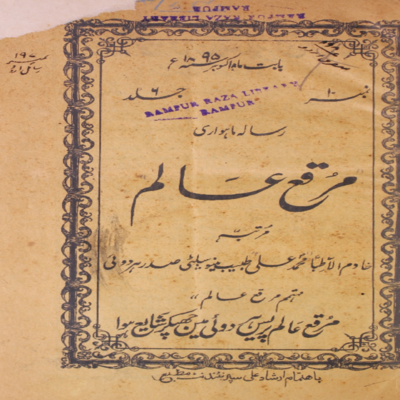 RAMPUR RAZA LIBRARY
RAMPUR
بابت ماہ اکتوبر ۱۸۹۵ء
نمبر ۱۰ جلد ۶
RAMPUR RAZA LIBRARY
RAMPUR
رسالہ ماہواری
مرقع عالم
مرتبہ
خادم الاطبا محمد علی طبیب میونسپلٹی صدر ہردوئی
مہتمم مرقع عالم
مرقع عالم پریس ہردوئی مین چھپکر شایع ہوا
باہتمام ارشاد علی سپرنٹنڈنٹ مطبع